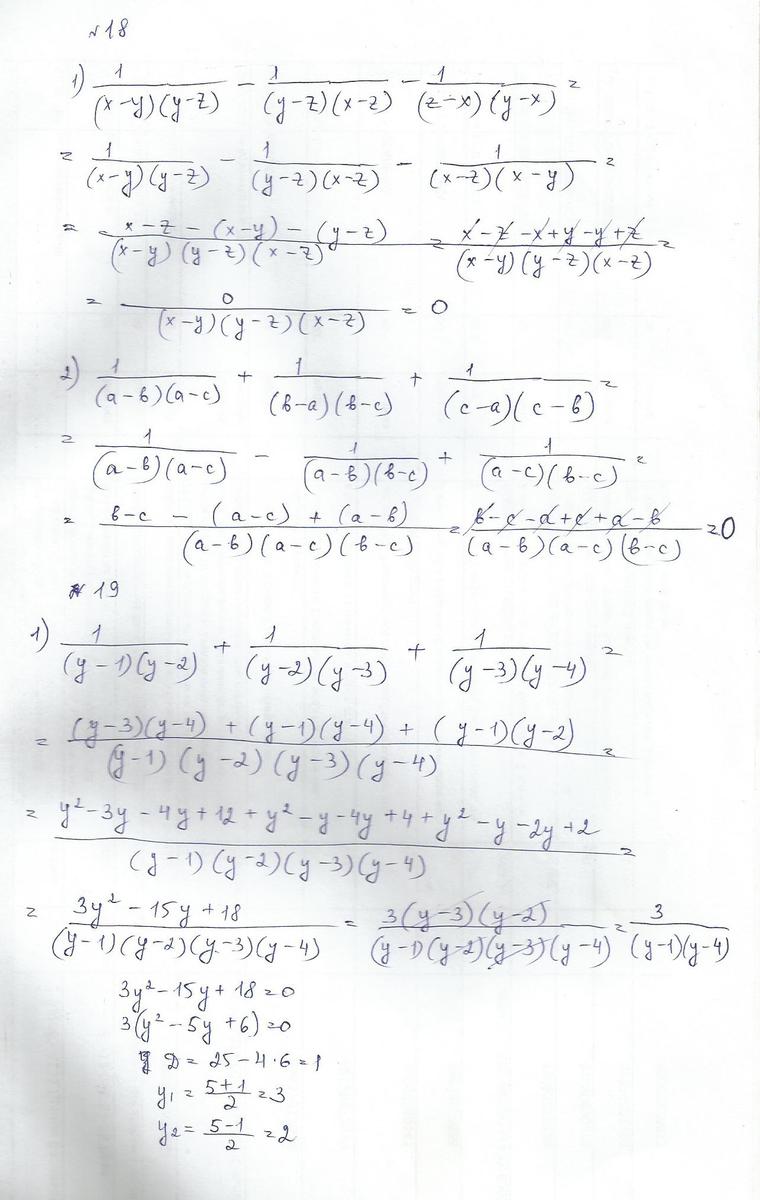 №18
1) 1/((x-y)(y-z)) - 1/((y-z)(x-z)) - 1/((z-x)(y-x)) =
= 1/((x-y)(y-z)) - 1/((y-z)(x-z)) - 1/((x-z)(x-y)) =
= (x-z - (x-y) - (y-z))/((x-y)(y-z)(x-z)) = (x-z-x+y-y+z)/((x-y)(y-z)(x-z)) =
= 0/((x-y)(y-z)(x-z)) = 0
2) 1/((a-b)(a-c)) + 1/((b-a)(b-c)) + 1/((c-a)(c-b)) =
= 1/((a-b)(a-c)) - 1/((a-b)(b-c)) + 1/((a-c)(b-c)) =
= (b-c - (a-c) + (a-b))/((a-b)(a-c)(b-c)) = (b-c-a+c+a-b)/((a-b)(a-c)(b-c)) = 0
№ 19
1) 1/((y-1)(y-2)) + 1/((y-2)(y-3)) + 1/((y-3)(y-4)) =
= ((y-3)(y-4) + (y-1)(y-4) + (y-1)(y-2))/((y-1)(y-2)(y-3)(y-4)) =
= (y²-3y-4y+12+y²-y-4y+4+y²-y-2y+2)/((y-1)(y-2)(y-3)(y-4)) =
= (3y²-15y+18)/((y-1)(y-2)(y-3)(y-4)) = (3(y-3)(y-2))/((y-1)(y-2)(y-3)(y-4)) = 3/((y-1)(y-4))
3y²-15y+18=0
3(y²-5y+6)=0
D = 25-4·6=1
y₁ = (5+1)/2 = 3
y₂ = (5-1)/2 = 2